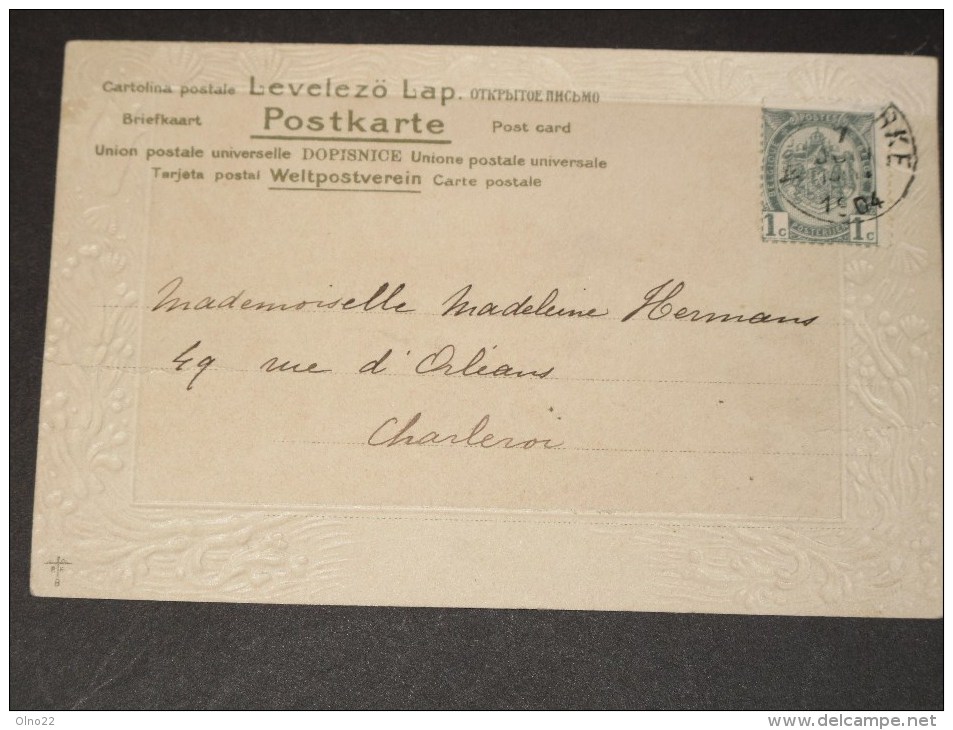 Cartolina postale Levelezö Lap. ОТКРЫТОЕ ПИСЬМО
Briefkaart Postkarte Post card
Union postale universelle DOPISNICE Unione postale universale
Tarjeta postal Weltpostverein Carte postale
POSTES
1c POSTERIJEN 1c
RKE
1
04
1904
Mademoiselle Madeleine Hermans
49 rue d'Orléans
Charleroi
Olno22
delcampe.net